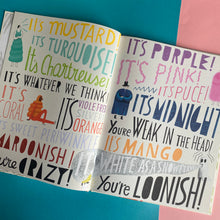 IT'S MUSTARD
IT'S TURQUOISE!
It's Chartreuse!
IT'S WHATEVER WE THINK!
IT'S
CORAL
IT'S
ORANGE
SWEET
MAROONISH!
You're CRAZY!
IT'S PURPLE!
IT'S PINK!
IT'S PUCE!
IT'S MIDNIGHT
You're WEAK IN THE HEAD!
IT'S MANGO
WHITE AS A SHOWER
You're LOONISH!